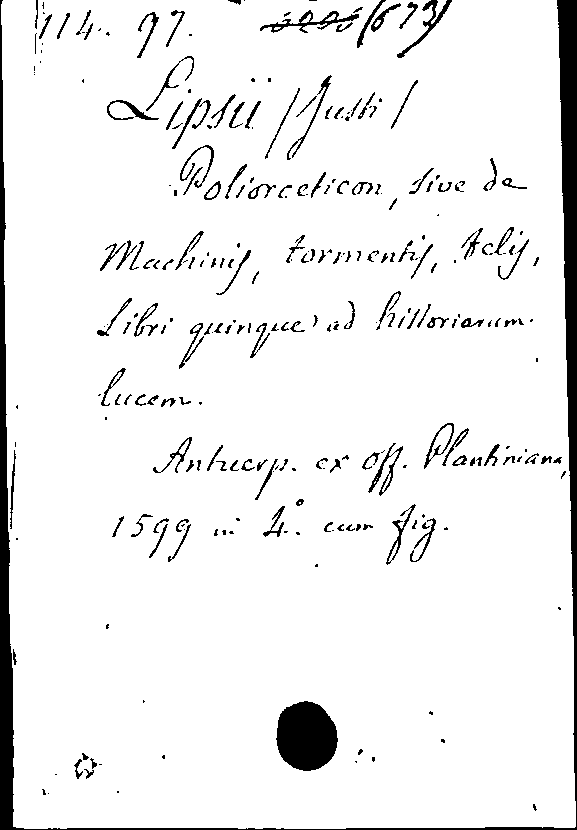 114. 97. (673)
Lipsii /Justi/
Poliorceticon, sive de
Machinis, tormentis, telis,
Libri quinque ad historiarum
lucem.
Antwerp. ex off. Plantiniana,
1599 in 4.° cum fig.